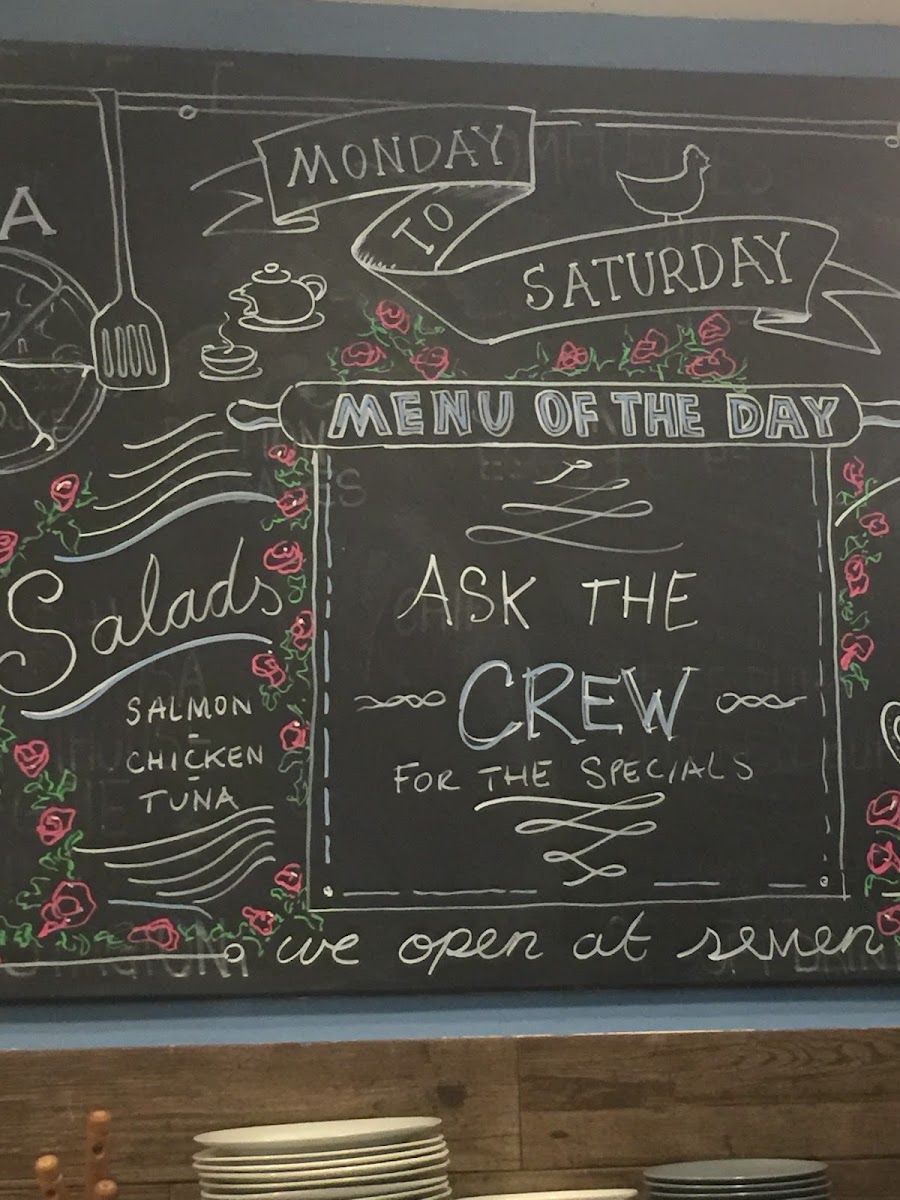 A
MONDAY
TO
SATURDAY
MENU OF THE DAY
ASK THE
CREW
FOR THE SPECIALS
Salads
SALMON
-
CHICKEN
-
TUNA
we open at seven